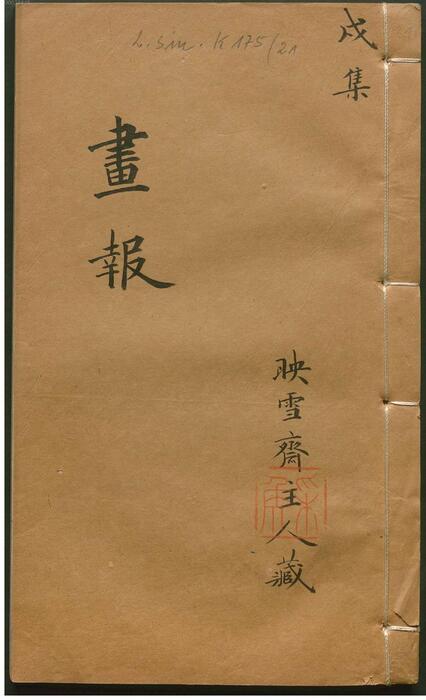 L. sin. K 175/21
戍集
畫報
映雪齋主人藏